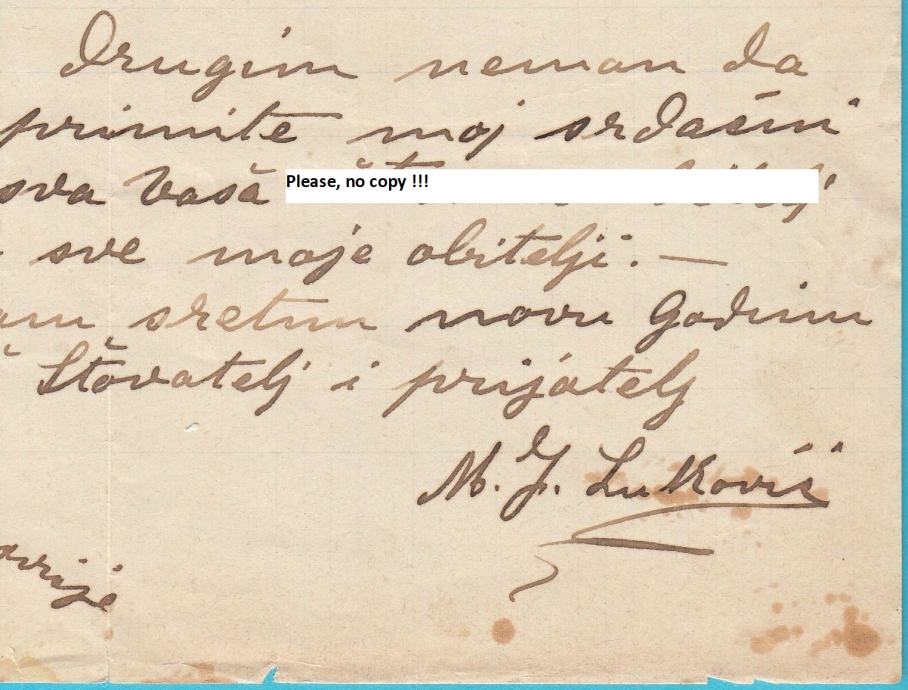 drugim neman da
primite moj srdašni
sva vašā
Please, no copy !!!
sve moje obitelji. —
sretnu novu godinu
Štovatelj i prijátelj
M. J. Luković